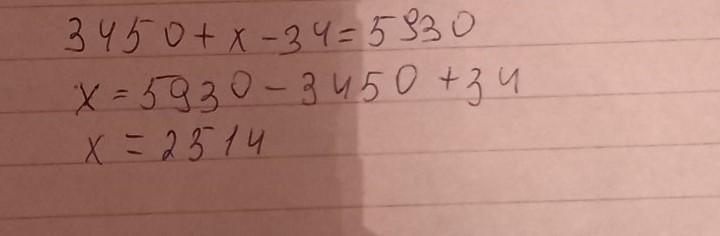 3450+x-34=5930
x=5930-3450+34
x=2514